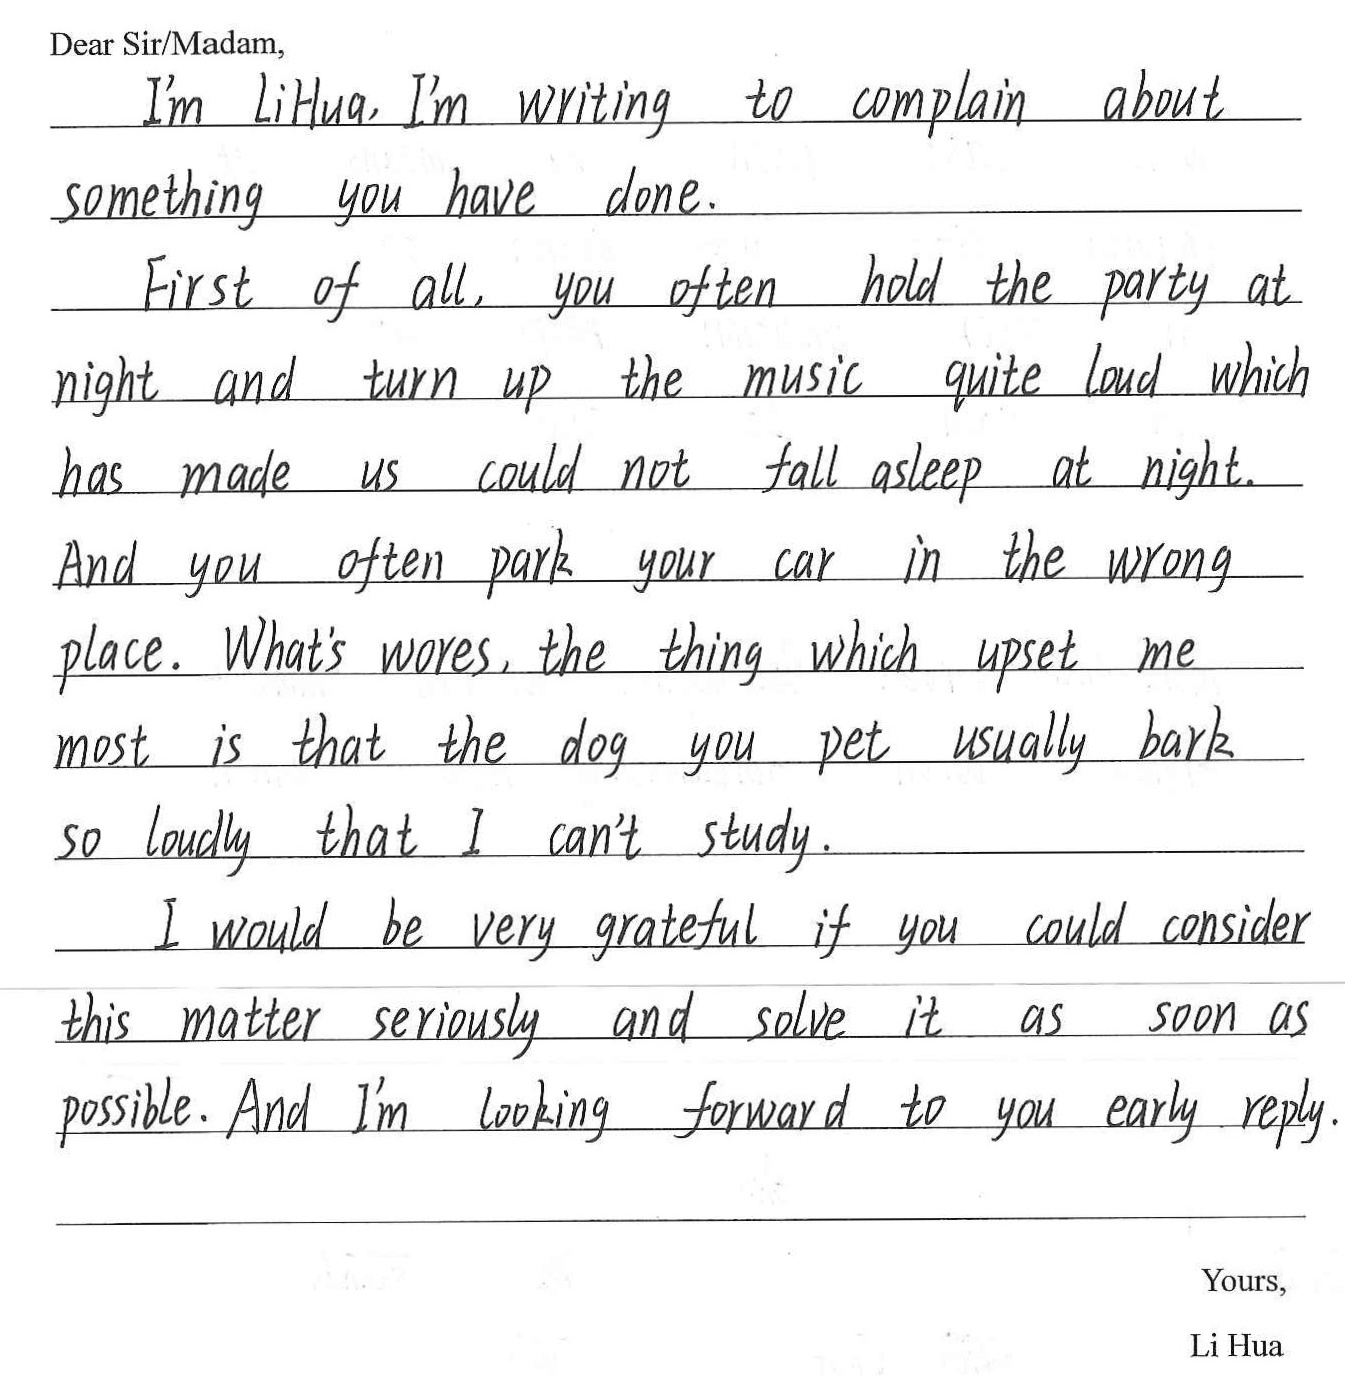 Dear Sir/Madam,
I'm LiHua, I'm writing to complain about
something you have done.
First of all, you often hold the party at
night and turn up the music quite loud which
has made us could not fall asleep at night.
And you often park your car in the wrong
place. What's wores, the thing which upset me
most is that the dog you pet usually bark
so loudly that I can't study.
I would be very grateful if you could consider
this matter seriously and solve it as soon as
possible. And I'm looking forward to you early reply.
Yours,
Li Hua